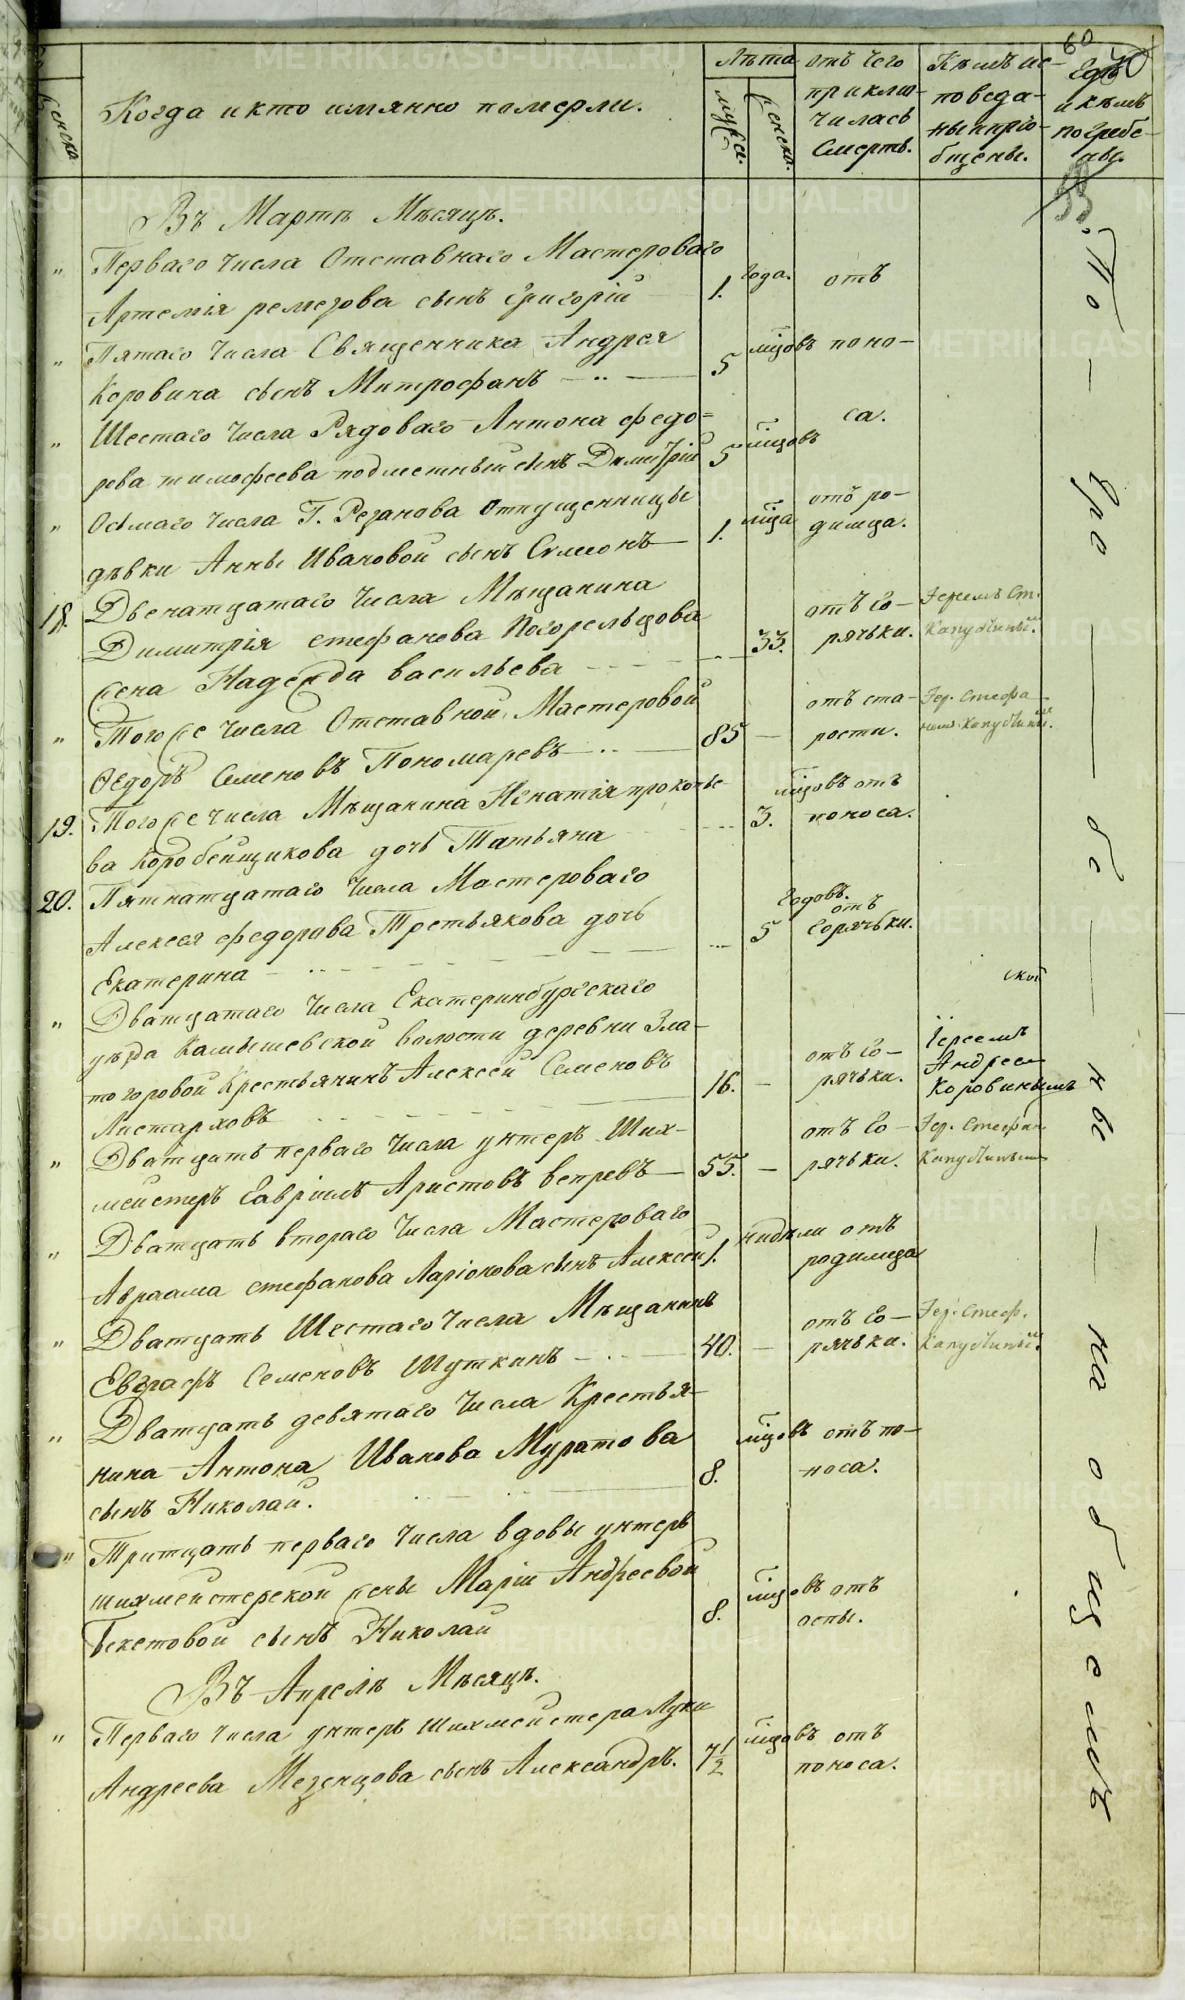 60
женска
Когда и кто имянно померли.
Лѣта
мужс.
женска.
отъ чего
приклю-
чилась
смерть.
Кѣмъ ис-
поведа-
ны и прiо-
бщены.
Гдѣ
и кѣмъ
погребе-
ны.
Въ Мартѣ Мѣсяцѣ.
„ Перваго числа Отставнаго Мастероваго
Артемiя ремезова сынъ Григорiй 1. года. отъ
„ Пятаго числа Священника Андрея
Коровина сынъ Митрофанъ 5 мцовъ поно-
„ Шестаго числа Рядоваго Антона федо-
рова тимофеева подметный сынъ Димитрiй 5 мцовъ са.
„ Осьмаго числа Г. Резанова отпущенницы
дѣвки Анны Ивановой сынъ Симiонъ 1. мца отъ ро-
димца.
18. Двенатцатаго числа Мѣщанина
Димитрiя стефанова Погорельцова
жена Надежда васильева 33. отъ го-
рячьки. Iерем. Ст.
Капустины.
„ Того же числа Отставной Мастеровой
Ѳедоръ Семеновъ Пономаревъ 85 отъ ста-
рости. Iер. Стефа
ном. Капустины.
19. Того же числа Мѣщанина Игнатiя прокопье
ва Коробейщикова дочь Татьяна 3. мцовъ отъ
поноса.
20. Пятнатцатаго числа Мастероваго
Алексея федорова Третьякова дочь
Екатерина 5 годовъ. отъ
горячьки.
„ Дватцатаго числа Екатеринбургскаго
уѣзда Камышевской волости деревни Зла-
тогоровой Крестьянинъ Алексей Семеновъ
Листарховъ 16. отъ го-
рячьки. Iереемъ
Андреем
Коровинымъ
„ Дватцать перваго числа унтеръ Ших-
мейстеръ Гаврiилъ Аристовъ вепревъ 55. отъ го-
рячьки. Iер. Стефан
Капустиным
„ Дватцать втораго числа Мастероваго
Авраама стефанова Ларiонова сынъ Алексей 1. нидѣли отъ
родимца
„ Дватцать Шестаго числа Мѣщанинъ
Евграфъ Семеновъ Шуткинъ 40. отъ го-
рячьки. Iер. Стеф.
Капустины.
„ Дватцать девятаго числа Крестья-
нина Антона Иванова Муратова
сынъ Николай. 8. мцовъ отъ по-
носа.
„ Тритцать перваго числа вдовы унтеръ
шихмейстерской жены Марiи Андреевой
Бекетовой сынъ Николай 8. мцовъ отъ
оспы.
Въ Апрелѣ Мѣсяцѣ.
„ Перваго числа унтеръ шихмейстера Луки
Андреева Мезенцова сынъ Александръ. 7 1/2 мцовъ отъ
поноса.
По-гре-бе-ны-на общемъ
METRIKI.GASO-URAL.RU